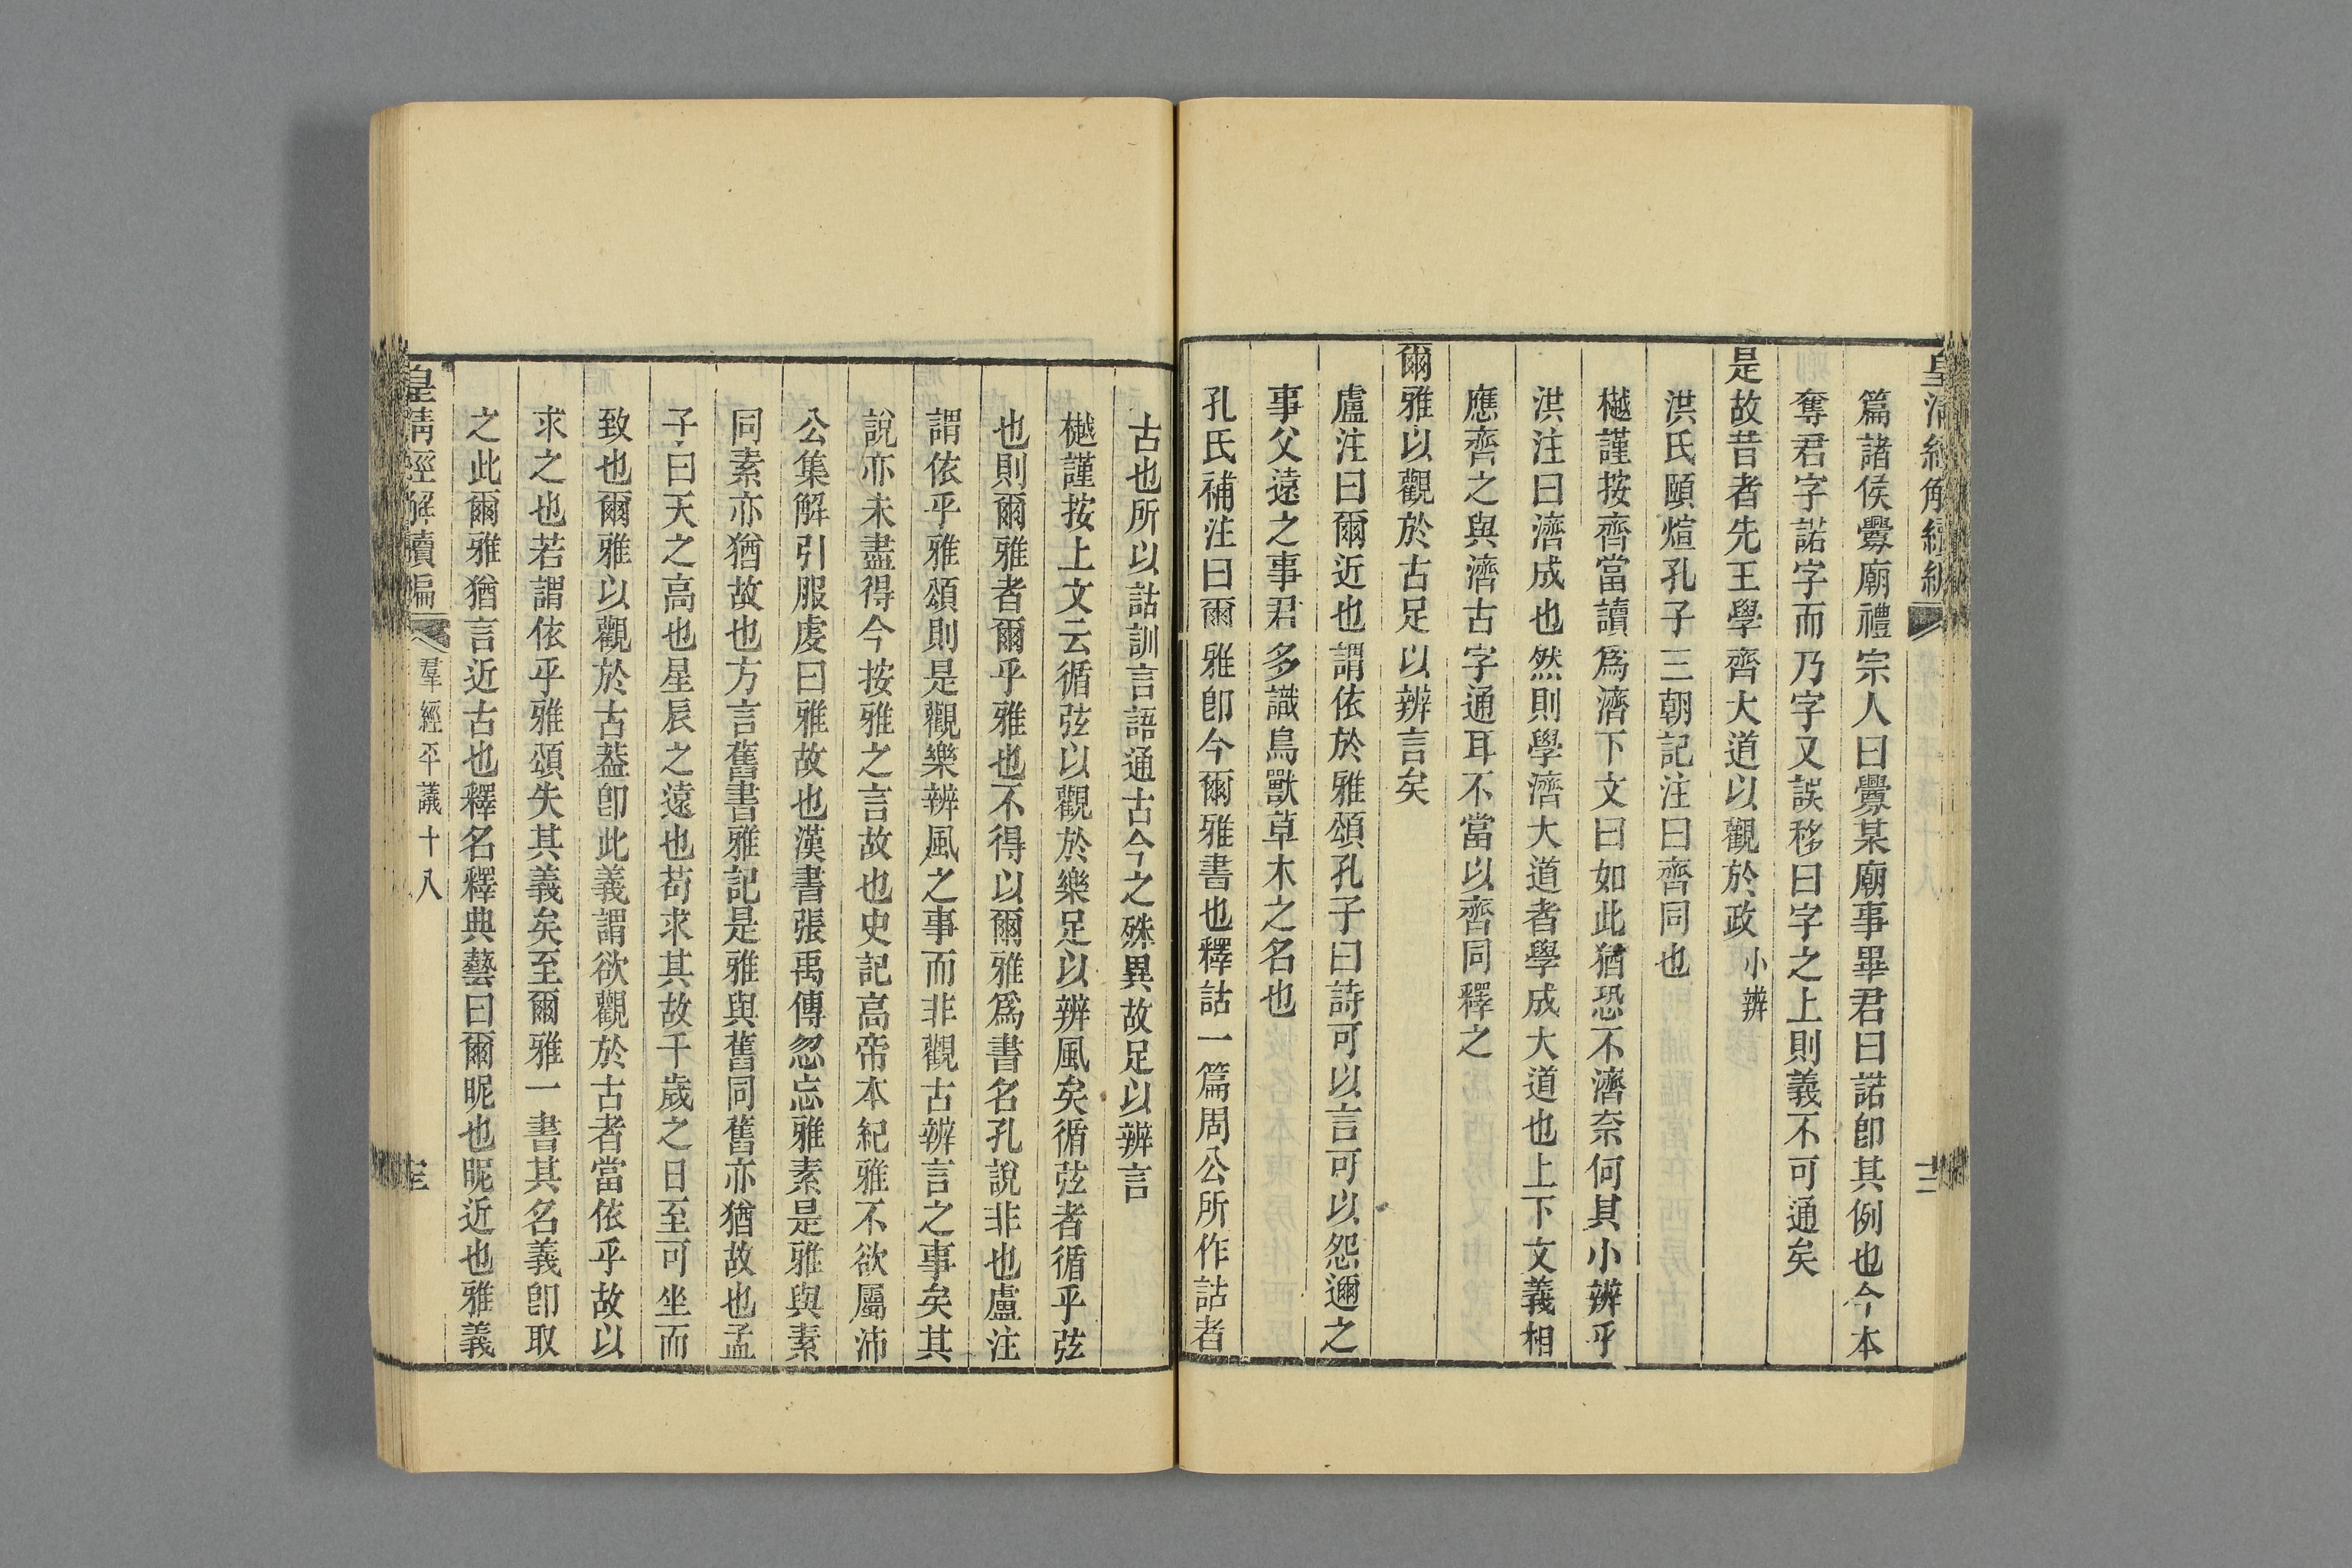 皇清經解續編
十二
篇諸侯釁廟禮宗人曰釁某廟事畢君曰諾卽其例也今本
奪君字諾字而乃字又誤移曰字之上則義不可通矣
是故昔者先王學齊大道以觀於政小辨
洪氏頤煊孔子三朝記注曰齊同也
樾謹按齊當讀爲濟下文曰如此猶恐不濟奈何其小辨乎
洪注曰濟成也然則學濟大道者學成大道也上下文義相
應齊之與濟古字通耳不當以齊同釋之
爾雅以觀於古足以辨言矣
盧注曰爾近也謂依於雅頌孔子曰詩可以言可以怨邇之
事父遠之事君多識鳥獸草木之名也
孔氏補注曰爾雅卽今爾雅書也釋詁一篇周公所作詁者
古也所以詁訓言語通古今之殊異故足以辨言
樾謹按上文云循弦以觀於樂足以辨風矣循弦者循乎弦
也則爾雅者爾乎雅也不得以爾雅爲書名孔說非也盧注
謂依乎雅頌則是觀樂辨風之事而非觀古辨言之事矣其
說亦未盡得今按雅之言故也史記高帝本紀雅不欲屬沛
公集解引服虔曰雅故也漢書張禹傳忽忘雅素是雅與素
同素亦猶故也方言舊書雅記是雅與舊同舊亦猶故也孟
子曰天之高也星辰之遠也苟求其故千歲之日至可坐而
致也爾雅以觀於古葢卽此義謂欲觀於古者當依乎故以
求之也若謂依乎雅頌失其義矣至爾雅一書其名義卽取
之此爾雅猶言近古也釋名釋典藝曰爾昵也昵近也雅義
皇清經解續編
羣經平議十八